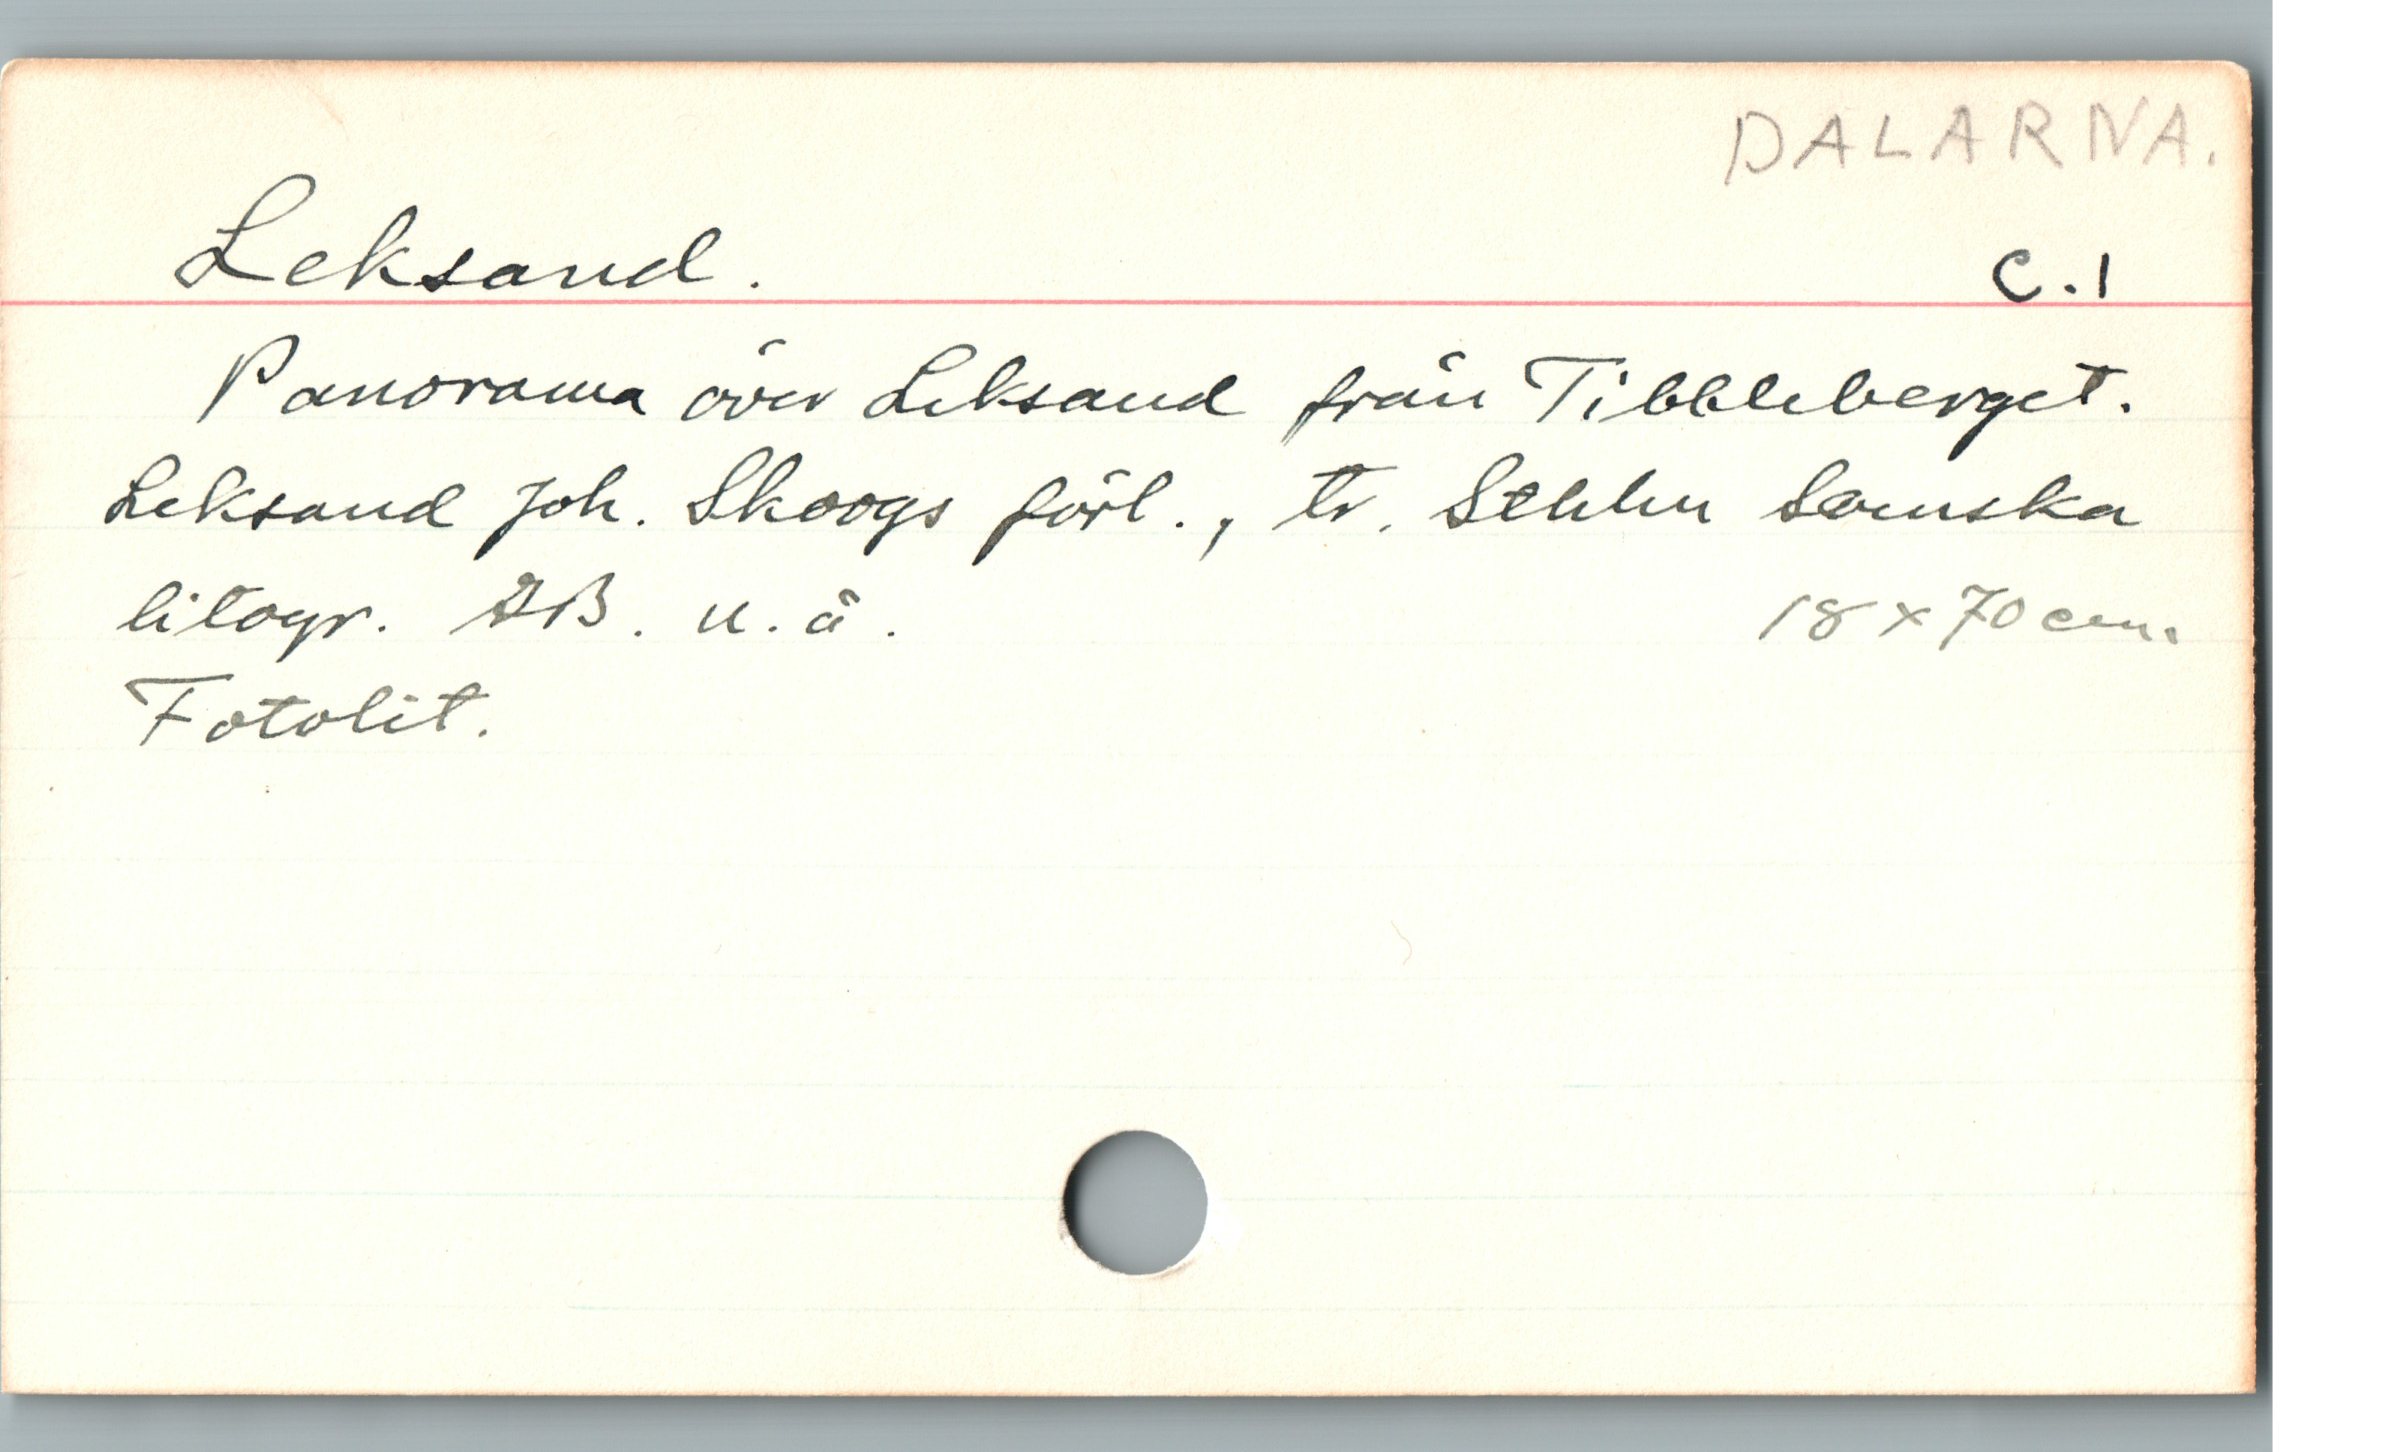 DALARNA.
Leksand. C.1
Panorama över Leksand från Tibbleberget.
Leksand Joh. Skoogs förl., tr. Sthlm
litogr. AB. u.å. 18 x 70 cm.
Fotolit.